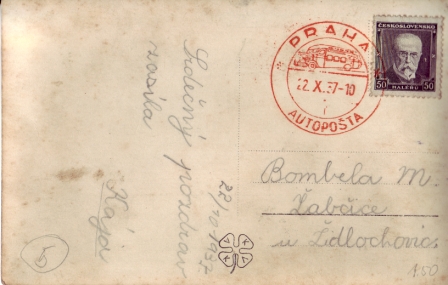 Srdečný pozdrav
zasílá
Kája
22/10 1937
PRAHA
22.X.37-10
AUTOPOŠTA
ČESKOSLOVENSKO
50 HALÉŘŮ 50
Bombela M.
Žabčice
u Židlochovic
5
150